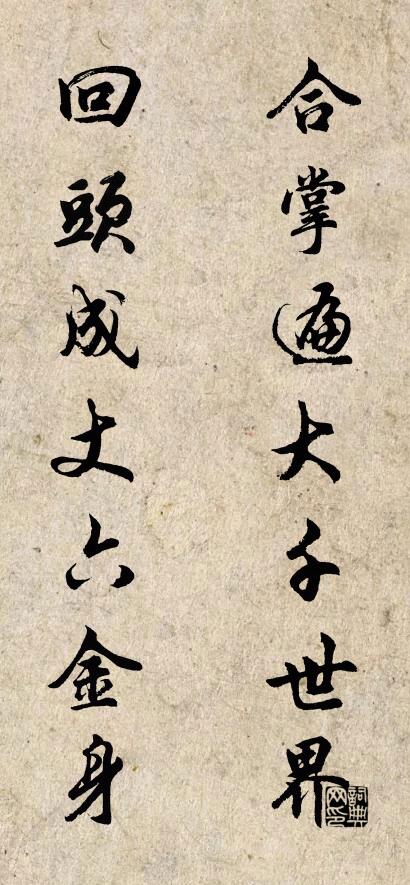 合掌遍大千世界
回頭成丈六金身
詞典网印